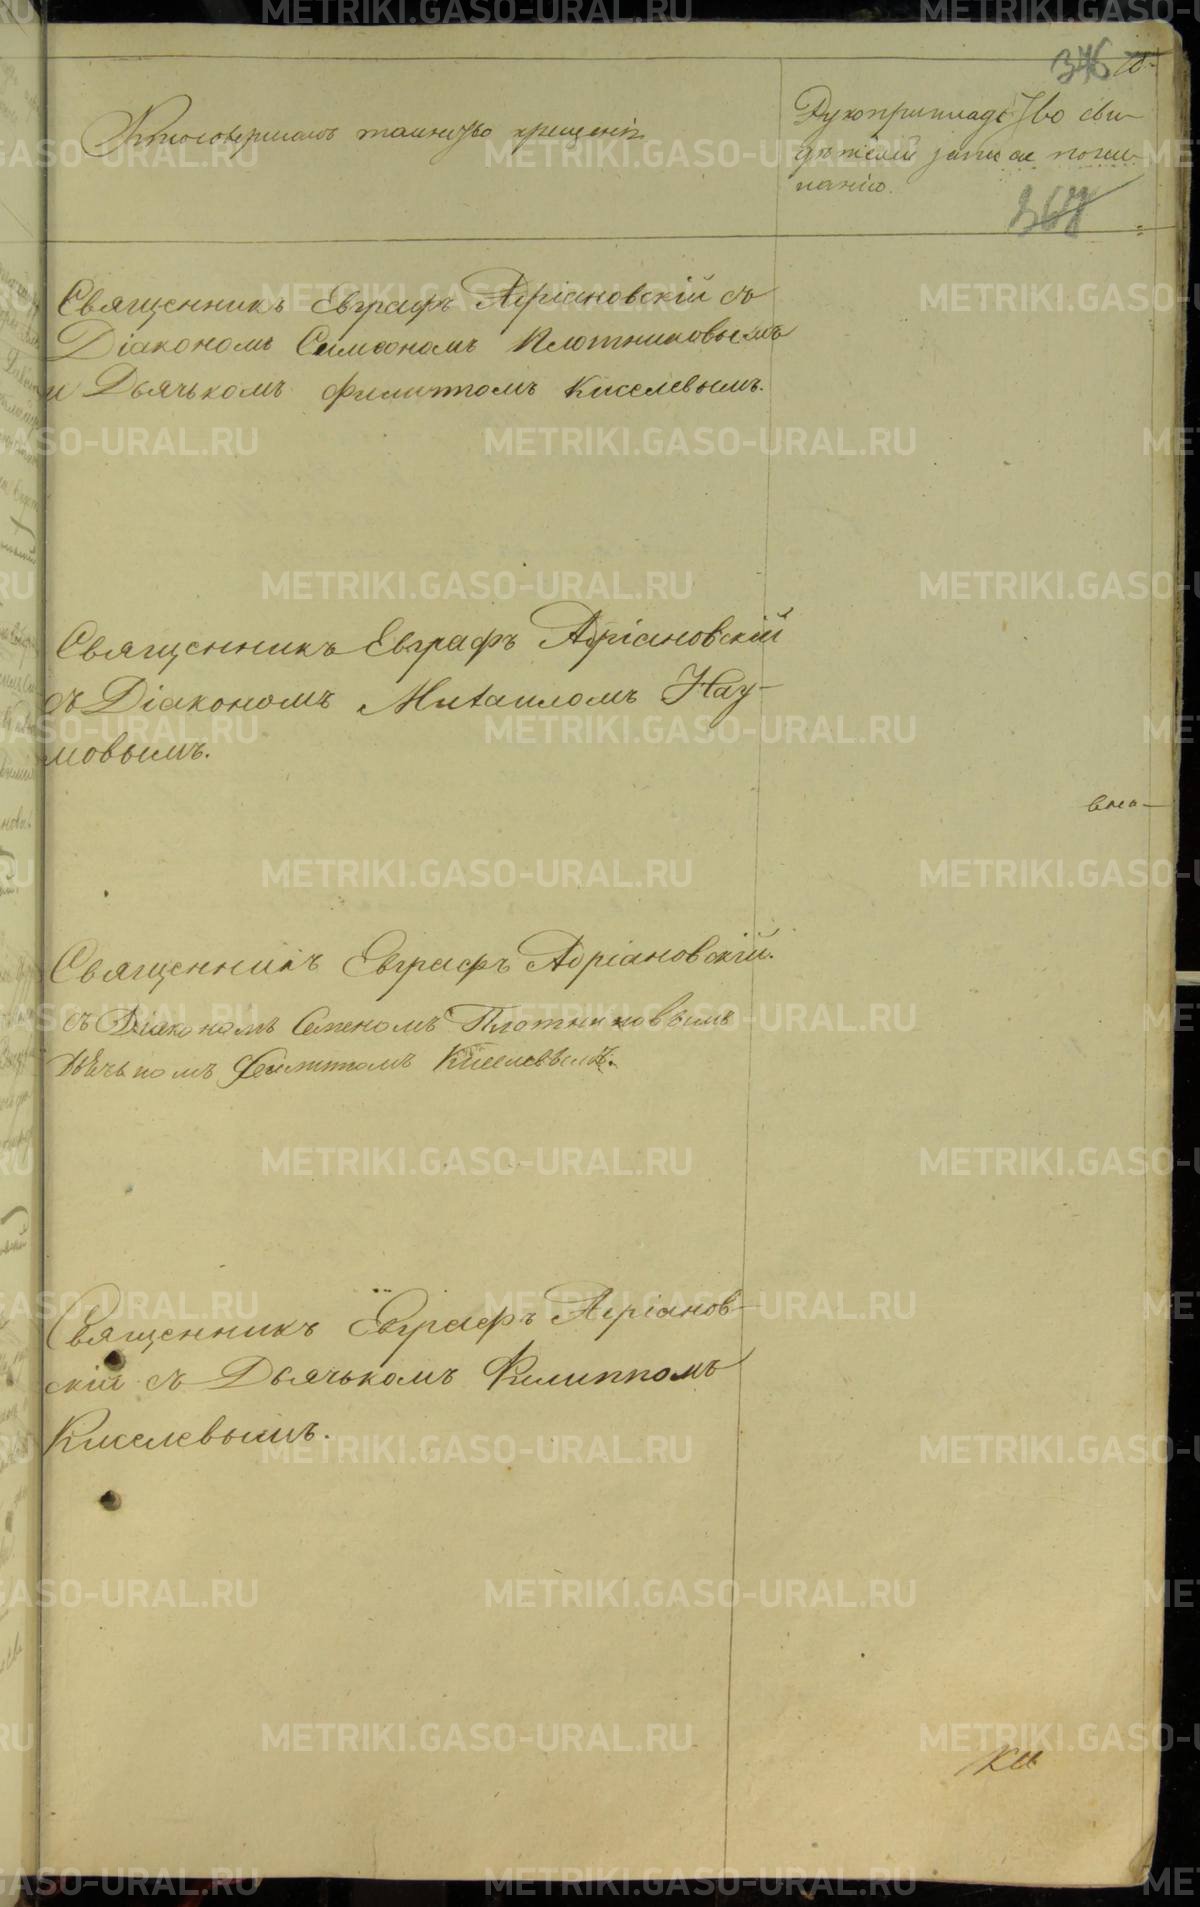 376
Кто совершалъ таинство крещенія
Рукоприкладство сви-
дѣтелей записи по жела-
нію.
367
Священникъ Евграфъ Адріановскій съ
Діакономъ Симеономъ Плотниковымъ
и Дьячькомъ Филиппомъ Киселевымъ.
Священникъ Евграфъ Адріановскій
съ Діакономъ Михаиломъ Нау-
мовымъ.
вно-
Священникъ Евграфъ Адріановскій.
съ Діакономъ Семеномъ Плотниковымъ
Дьячькомъ Филиппомъ Киселевымъ.
Священникъ Евграфъ Адріанов-
скій съ Дьячькомъ Филиппомъ
Киселевымъ.
METRIKI.GASO-URAL.RU